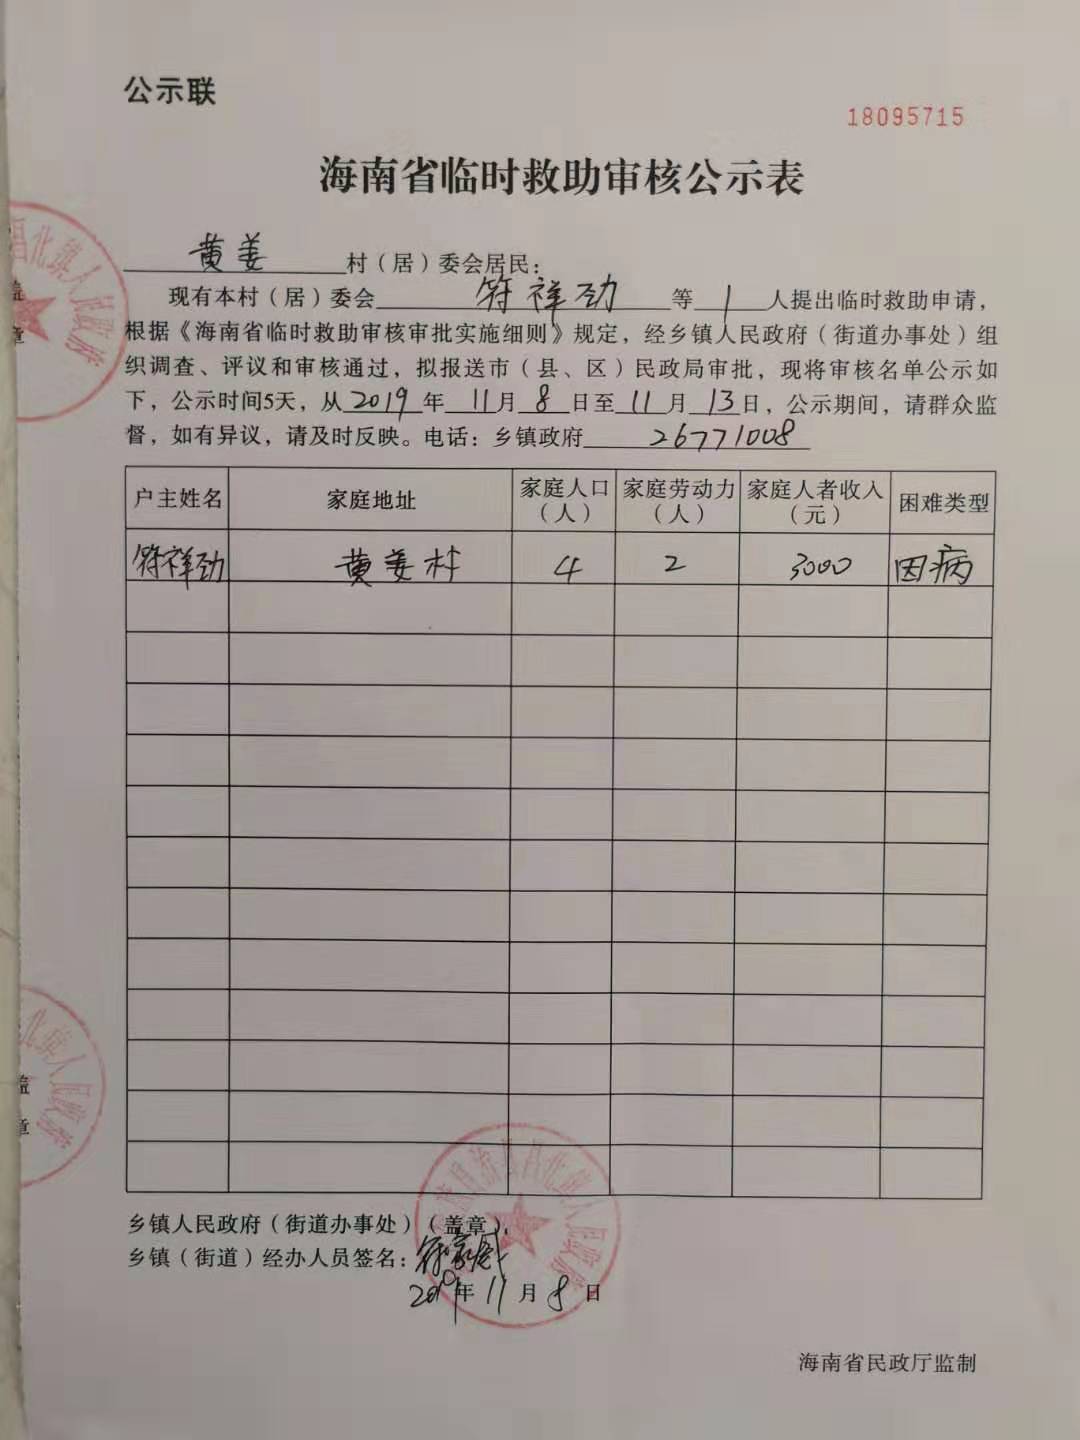 公示联
18095715
海南省临时救助审核公示表
黄姜村（居）委会居民：
现有本村（居）委会符祥劲等1人提出临时救助申请，
根据《海南省临时救助审核审批实施细则》规定，经乡镇人民政府（街道办事处）组
织调查、评议和审核通过，拟报送市（县、区）民政局审批，现将审核名单公示如
下，公示时间5天，从2019年11月8日至11月13日，公示期间，请群众监
督，如有异议，请及时反映。电话：乡镇政府26771008
户主姓名 家庭地址 家庭人口（人） 家庭劳动力（人） 家庭人者收入（元） 困难类型
符祥劲 黄姜村 4 2 3000 因病
乡镇人民政府（街道办事处）（盖章）：
乡镇（街道）经办人员签名：
2019年11月8日
海南省民政厅监制
昌化镇人民政府
盖
章
化镇人民政府
盖
章
昌化镇人民政府